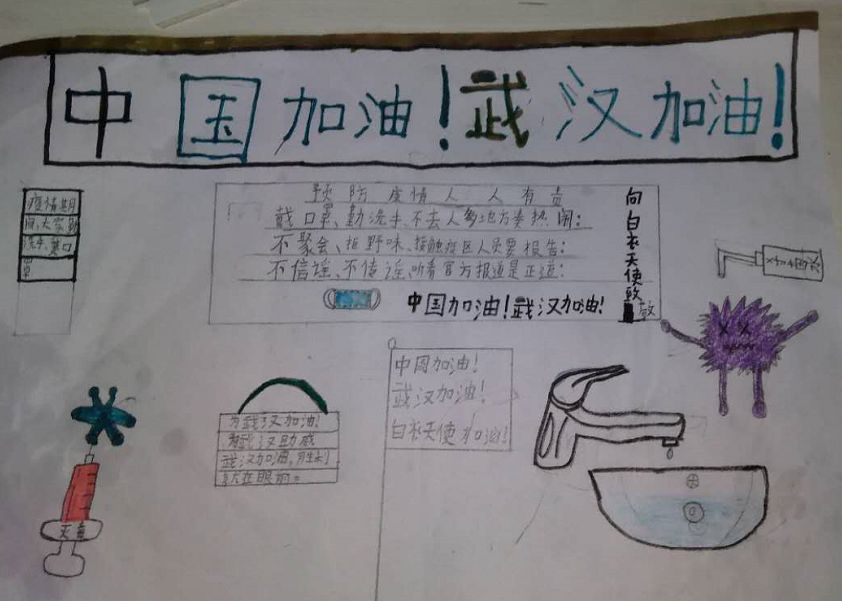 中国加油!武汉加油!
疫情期
间,大家勤
洗手,戴口
罩
预防疫情人人有责
戴口罩、勤洗手、不去人多地方凑热闹:
不聚会、拒野味、接触疫区人员要报告:
不信谣、不传谣、听看官方报道是正道:
中国加油!武汉加油!
向白衣天使致敬
中国加油!
武汉加油!
白衣天使加油!
为武汉加油!
为武汉助威
武汉加油,胜利
就在眼前。
灭毒